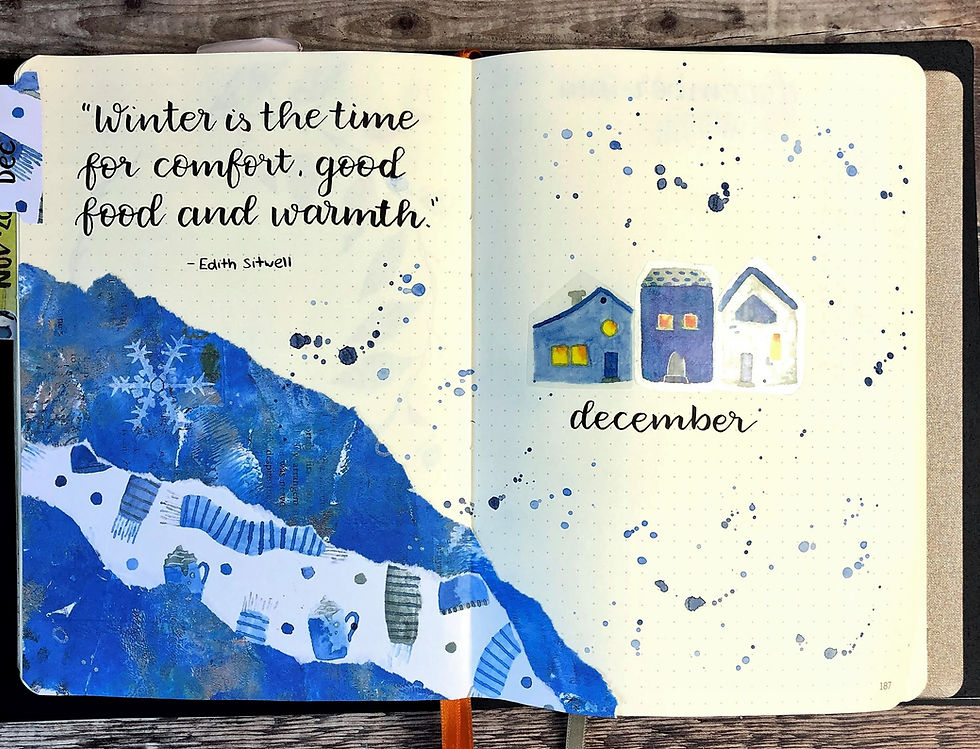 "Winter is the time
for comfort, good
food and warmth."
- Edith Sitwell
december
Dec
NOV
187